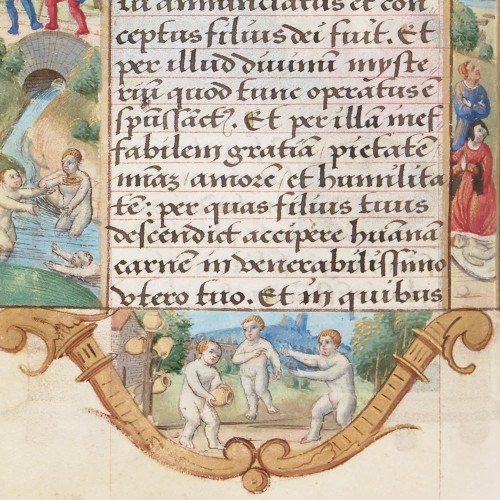 tu annunciatus et con
ceptus filius dei fuit. Et
per illud divinū myste
riū quod tunc operatus ē
spūssāct⁹. Et per illā inef
fabilem gratiā, pietatē
miāz, amorē, et humilita
tē: per quas filius tuus
descendit accipere huānā
carnē in venerabilissimo
vtero tuo. Et in quibus